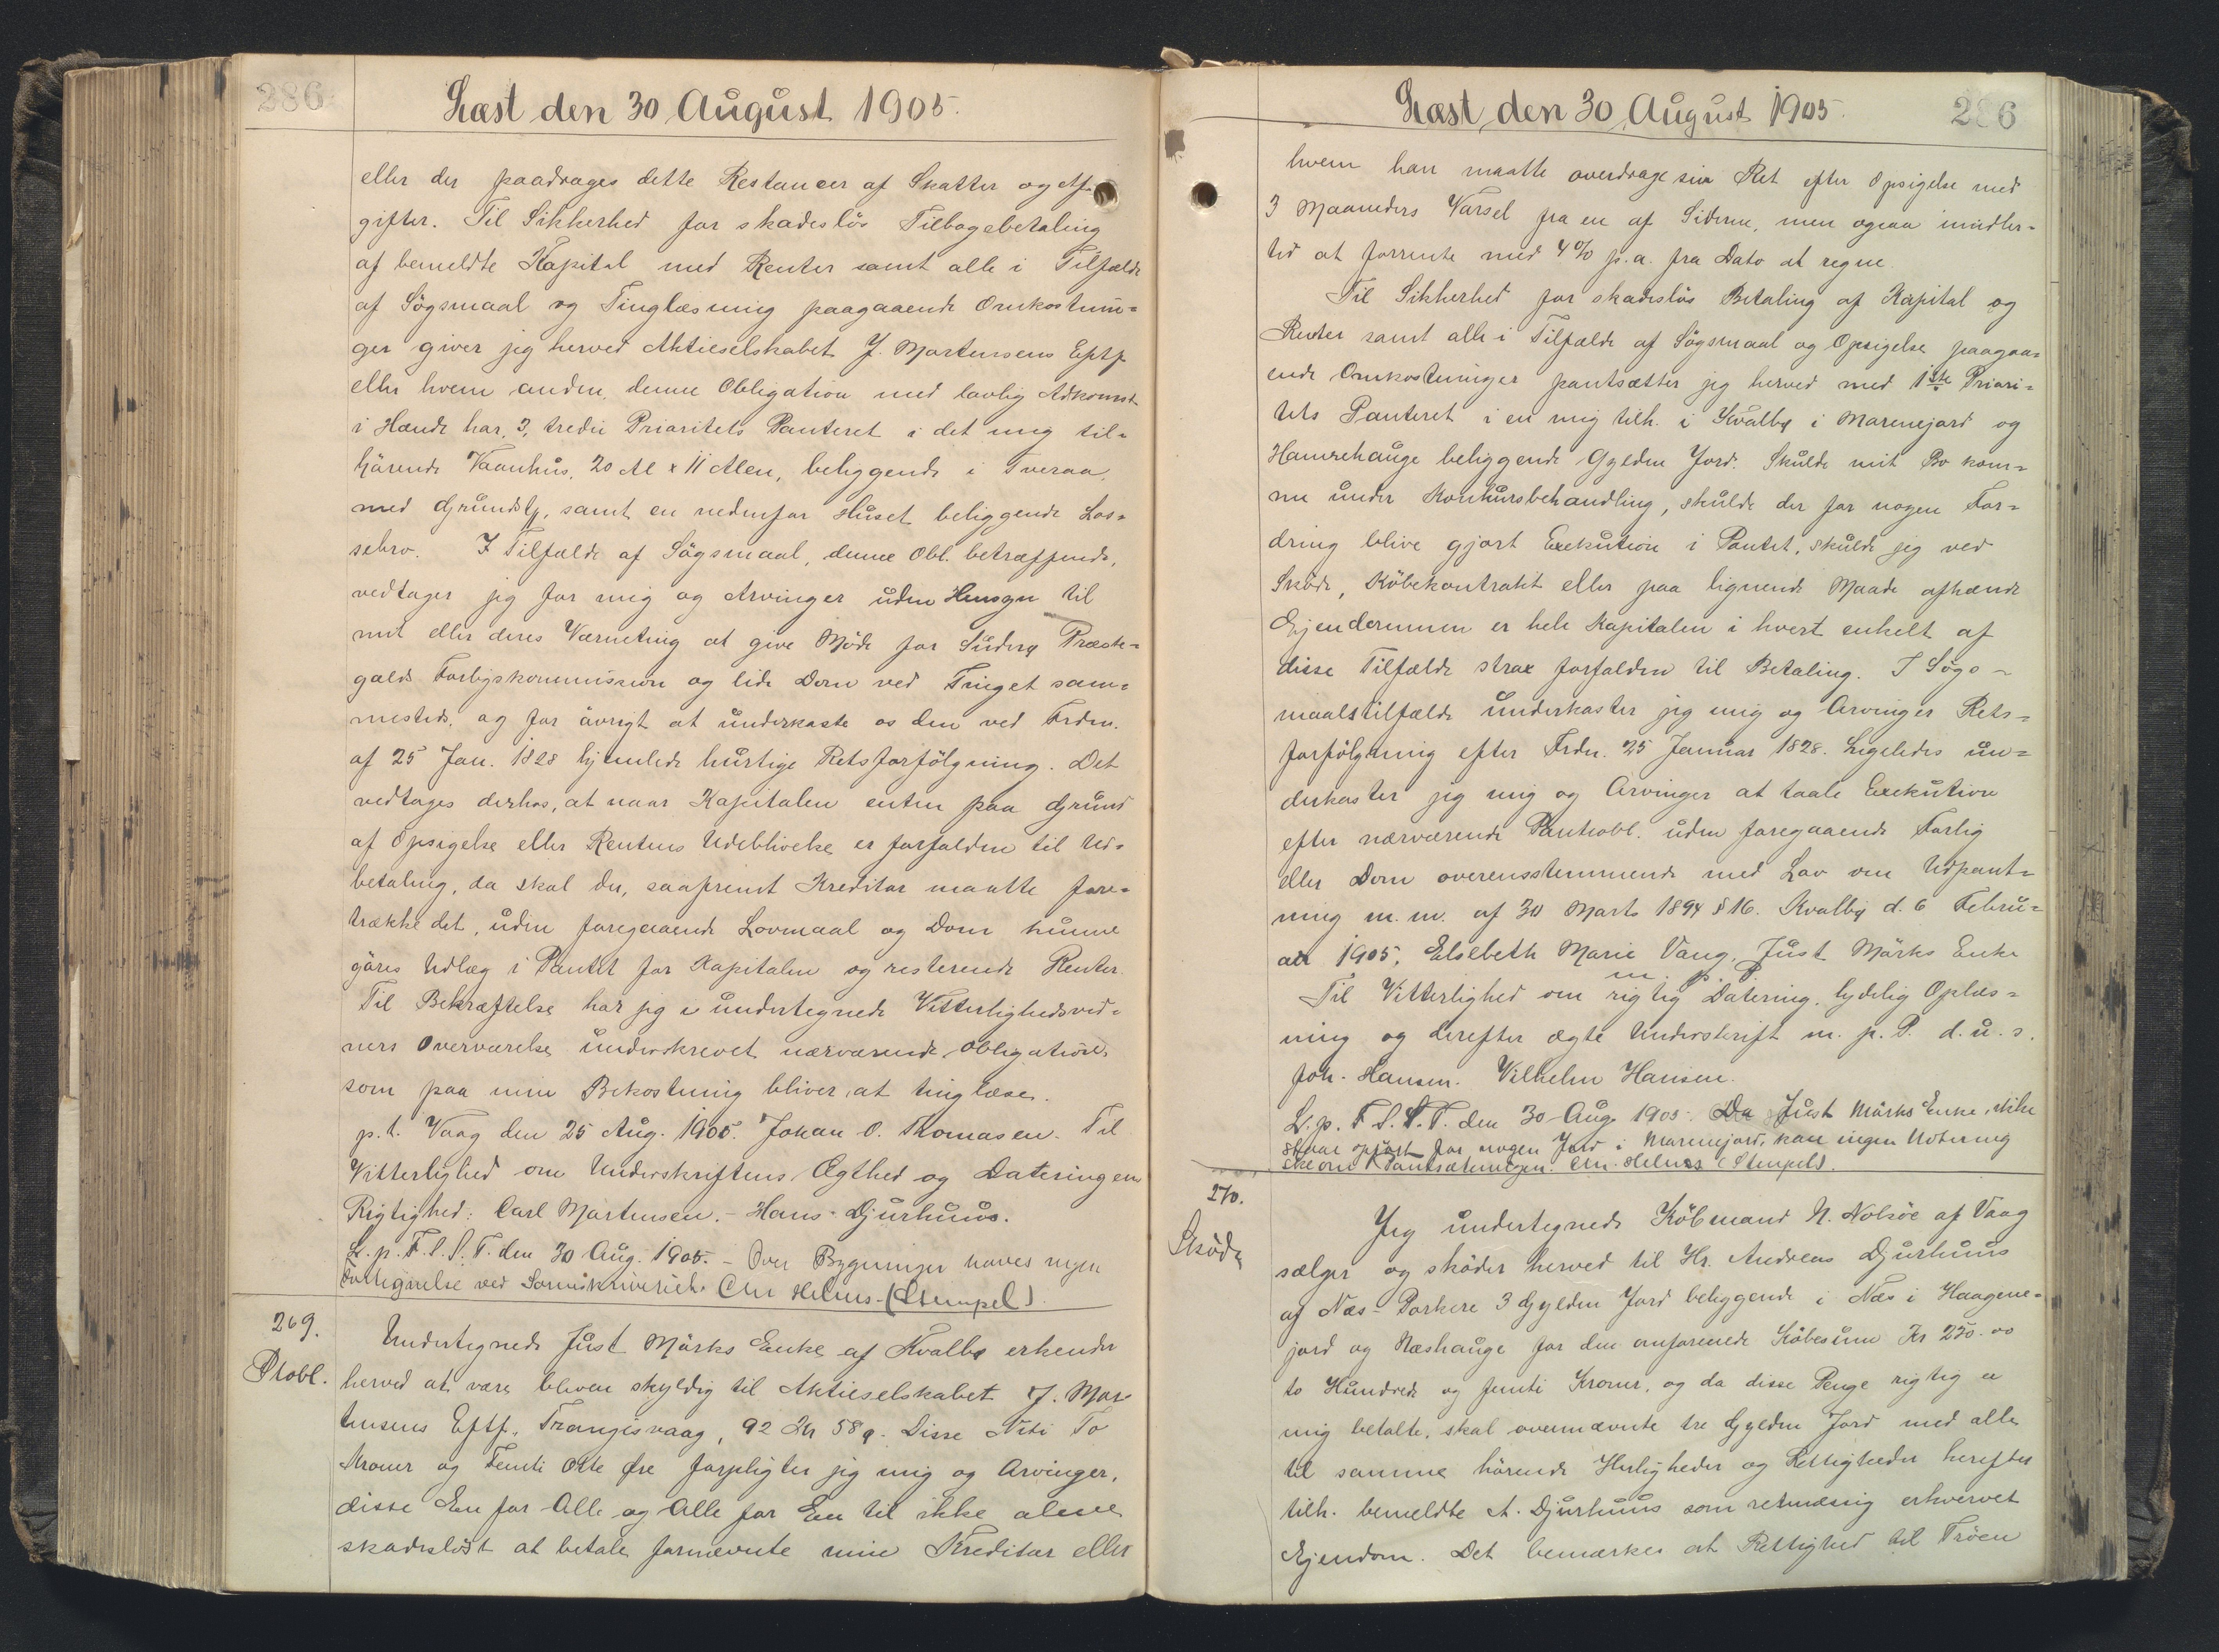 286
Læst den 30 August 1905.
eller der paadrages dette Restancer af Skatter og Af-
gifter. Til Sikkerhed for skadeslös Tilbagebetaling
af bemeldte Kapital med Renter samt alle i Tilfælde
af Sögsmaal og Tinglæsning paagaaende Omkostnin=
ger giver jeg herved Aktieselskabet J. Mortensens Eftf.
eller hvem anden, denne Obligation med lovlig Adkomst
i Hænde har, 3, tredie Prioritets Panteret i det mig til=
hörende Vaanhus, 20 Al x 11 Alen, beliggende i Tveraa,
med Grundstk, samt en nedenfor Huset beliggende Los=
sebro. I Tilfælde af Sögsmaal, denne Obl. betræffende,
vedtager jeg for mig og Arvinger uden Hensyn til
mit eller deres Værneting at give Möde for Suderø Præste=
gælds Forligskommission og lide Dom ved Tinget sam=
mesteds, og for övrigt at underkaste os den ved Frdn.
af 25 Jan. 1828 hjemlede hurtige Retsforfölgning. Det
vedtages derhos, at naar Kapitalen enten paa Grund
af Opsigelse eller Rentens Udeblivelse er forfalden til Ud=
betaling, da skal der, saafremt Kreditor maatte fore=
trække det, uden foregaaende Lovmaal og Dom kunne
göres Udlæg i Pantet for Kapitalen og resterende Renter.
Til Bekræftelse har jeg i undertegnede Vitterlighedsvid=
ners Overværelse underskrevet nærværende Obligation,
som paa min Bekostning bliver at tinglæse.
p.t. Vaag den 25 Aug. 1905. Johan O. Thomasen. Til
Vitterlighed om Underskriftens Ægthed og Dateringens
Rigtighed: Carl Mortensen. - Hans Djurhuus.
L. p. F. S. S. T. den 30 Aug. 1905. - Over Bygninger haves ingen
Fortegnelse ved Sorenskriveriet. Chr Helms. (Stempel).
269.
Ptobl.
Undertegnede Just Mörks Enke af Kvalbø erkender
herved at være bleven skyldig til Aktieselskabet J. Mor
tensens Eftf., Trangisvaag, 92 Kr 58 Ø. Disse Niti To
Kroner og Femti Otte Øre forpligter jeg mig og Arvinger,
disse Een for Alle og Alle for Een til ikke alene
skadeslöst at betale fornævnte min Kreditor eller
Læst den 30 August 1905.
286
hvem han maatte overdrage sin Ret efter Opsigelse med
3 Maaneders Varsel fra en af Siderne, men ogsaa imidler=
tid at forrente med 4% p.a. fra Dato at regne.
Til Sikkerhed for skadeslös Betaling af Kapital og
Renter samt alle i Tilfælde af Sögsmaal og Opsigelse paagaa=
ende Omkostninger pantsætter jeg herved med 1ste Priori=
tets Panteret i en mig tilh. i Kvalbø i Marenejord og
Hamrehauge beliggende Gylden Jord. Skulde mit Bo kom=
me under Konkursbehandling, skulde der for nogen For=
dring blive gjort Exekution i Pantet, skulde jeg ved
Sköde, Köbekontrakt eller paa lignende Maade afhænde
Ejendommen er hele Kapitalen i hvert enkelt af
disse Tilfælde strax forfalden til Betaling. I Sögs=
maalstilfælde underkaster jeg mig og Arvinger Rets=
forfölgning efter Frdn. 25 Januar 1828. Ligeledes un=
derkaster jeg mig og Arvinger at taale Exekution
efter nærværende Panteobl. uden foregaaende Forlig
eller Dom overensstemmende med Lov om Udpant=
ning m.m. af 30 Marts 1894 § 16. Kvalbø d. 6 Febru=
ar 1905, Elsebeth Marie Vang, Just Mörks Enke
m. p. P.
Til Vitterlighed om rigtig Datering, lydelig Oplæs=
ning og derefter ægte Underskrift m. p. P. d. u. s.
Joh. Hansen. Vilhelm Hansen.
L. p. F. S. S. T. den 30 Aug 1905. Da Just Mörks Enke ikke
staar opfört for nogen Jord i Marenejord, kan ingen Notering
ske om Pantsætningen. Chr. Helms (Stempel).
270.
Sköde
Jeg undertegnede Köbmand N. Nolsöe af Vaag
sælger og sköder herved til Hr. Andreas Djurhuus
af Næs - Porkere 3 Gylden Jord beliggende i Næs i Haagene=
jord og Næshauge for den omforenede Köbesum Kr 250.00
to Hundrede og femti Kroner, og da disse Penge rigtig er
mig betalte, skal ovennævnte tre Gylden Jord med alle
til samme hörende Herligheder og Rettigheder herefter
tilh. bemeldte A. Djurhuus som retmæssig erhvervet
Ejendom. Det bemærkes at Rettighed til Tröen